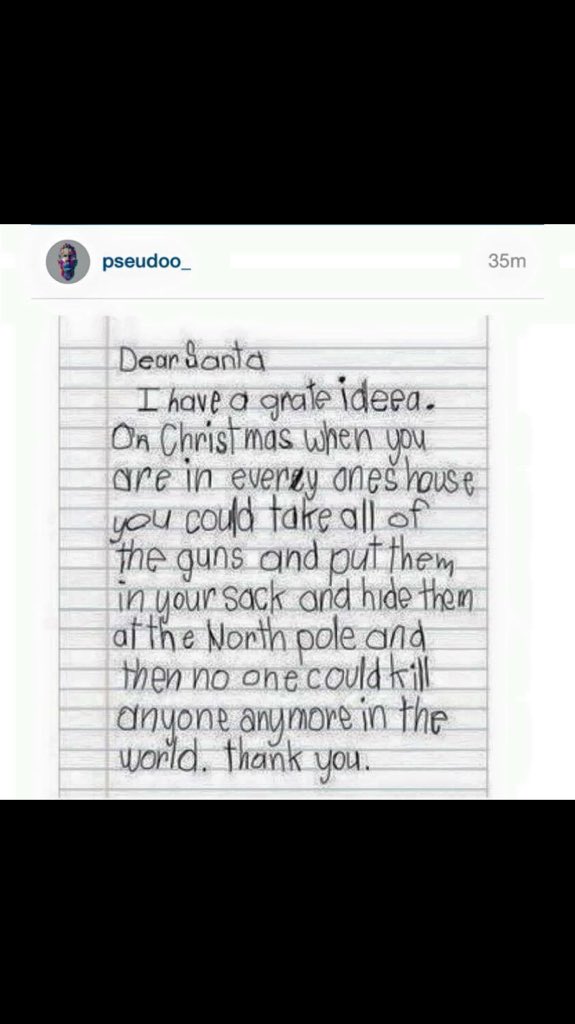 pseudoo_ 35m
Dear Santa
I have a grate ideea.
On Christmas when you
are in everzy ones house
you could take all of
the guns and put them
in your sack and hide them
at the North pole and
then no one could kill
anyone anymore in the
world. thank you.